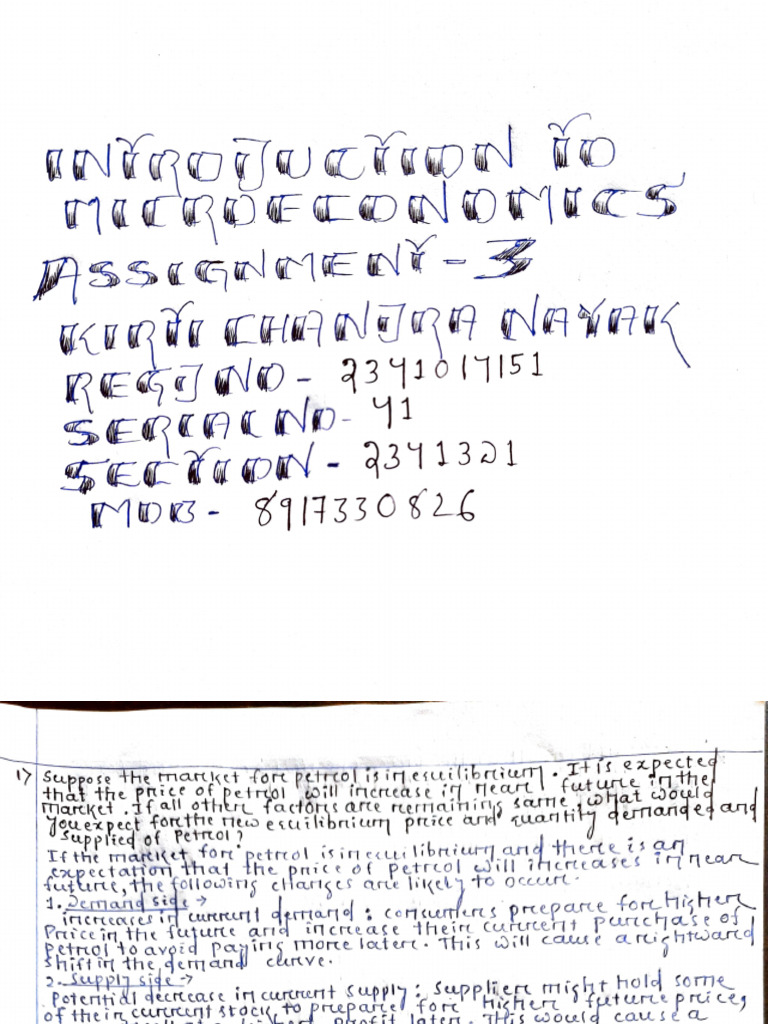 INTRODUCTION TO
MICROECONOMICS
ASSIGNMENT - 3
KIRTI CHANDRA NAYAK
REGD NO - 2341017151
SERIAL NO - 41
SECTION - 2341321
MOB - 8917330826
1) Suppose the market for petrol is in equilibrium. It is expected
that the price of petrol will increase in near future in the
market. If all other factors are remaining same, what would
you expect for the new equilibrium price and quantity demanded and
supplied of petrol?
If the market for petrol is in equilibrium and there is an
expectation that the price of petrol will increases in near
future, the following changes are likely to occur:
1. Demand side →
increases in current demand: consumers prepare for higher
price in the future and increase their current purchase of
petrol to avoid paying more later. This will cause a rightward
shift in the demand curve.
2. Supply side →
Potential decrease in current supply: Suppliers might hold some
of their current stock to prepare for higher future prices,
profit later. This would cause a